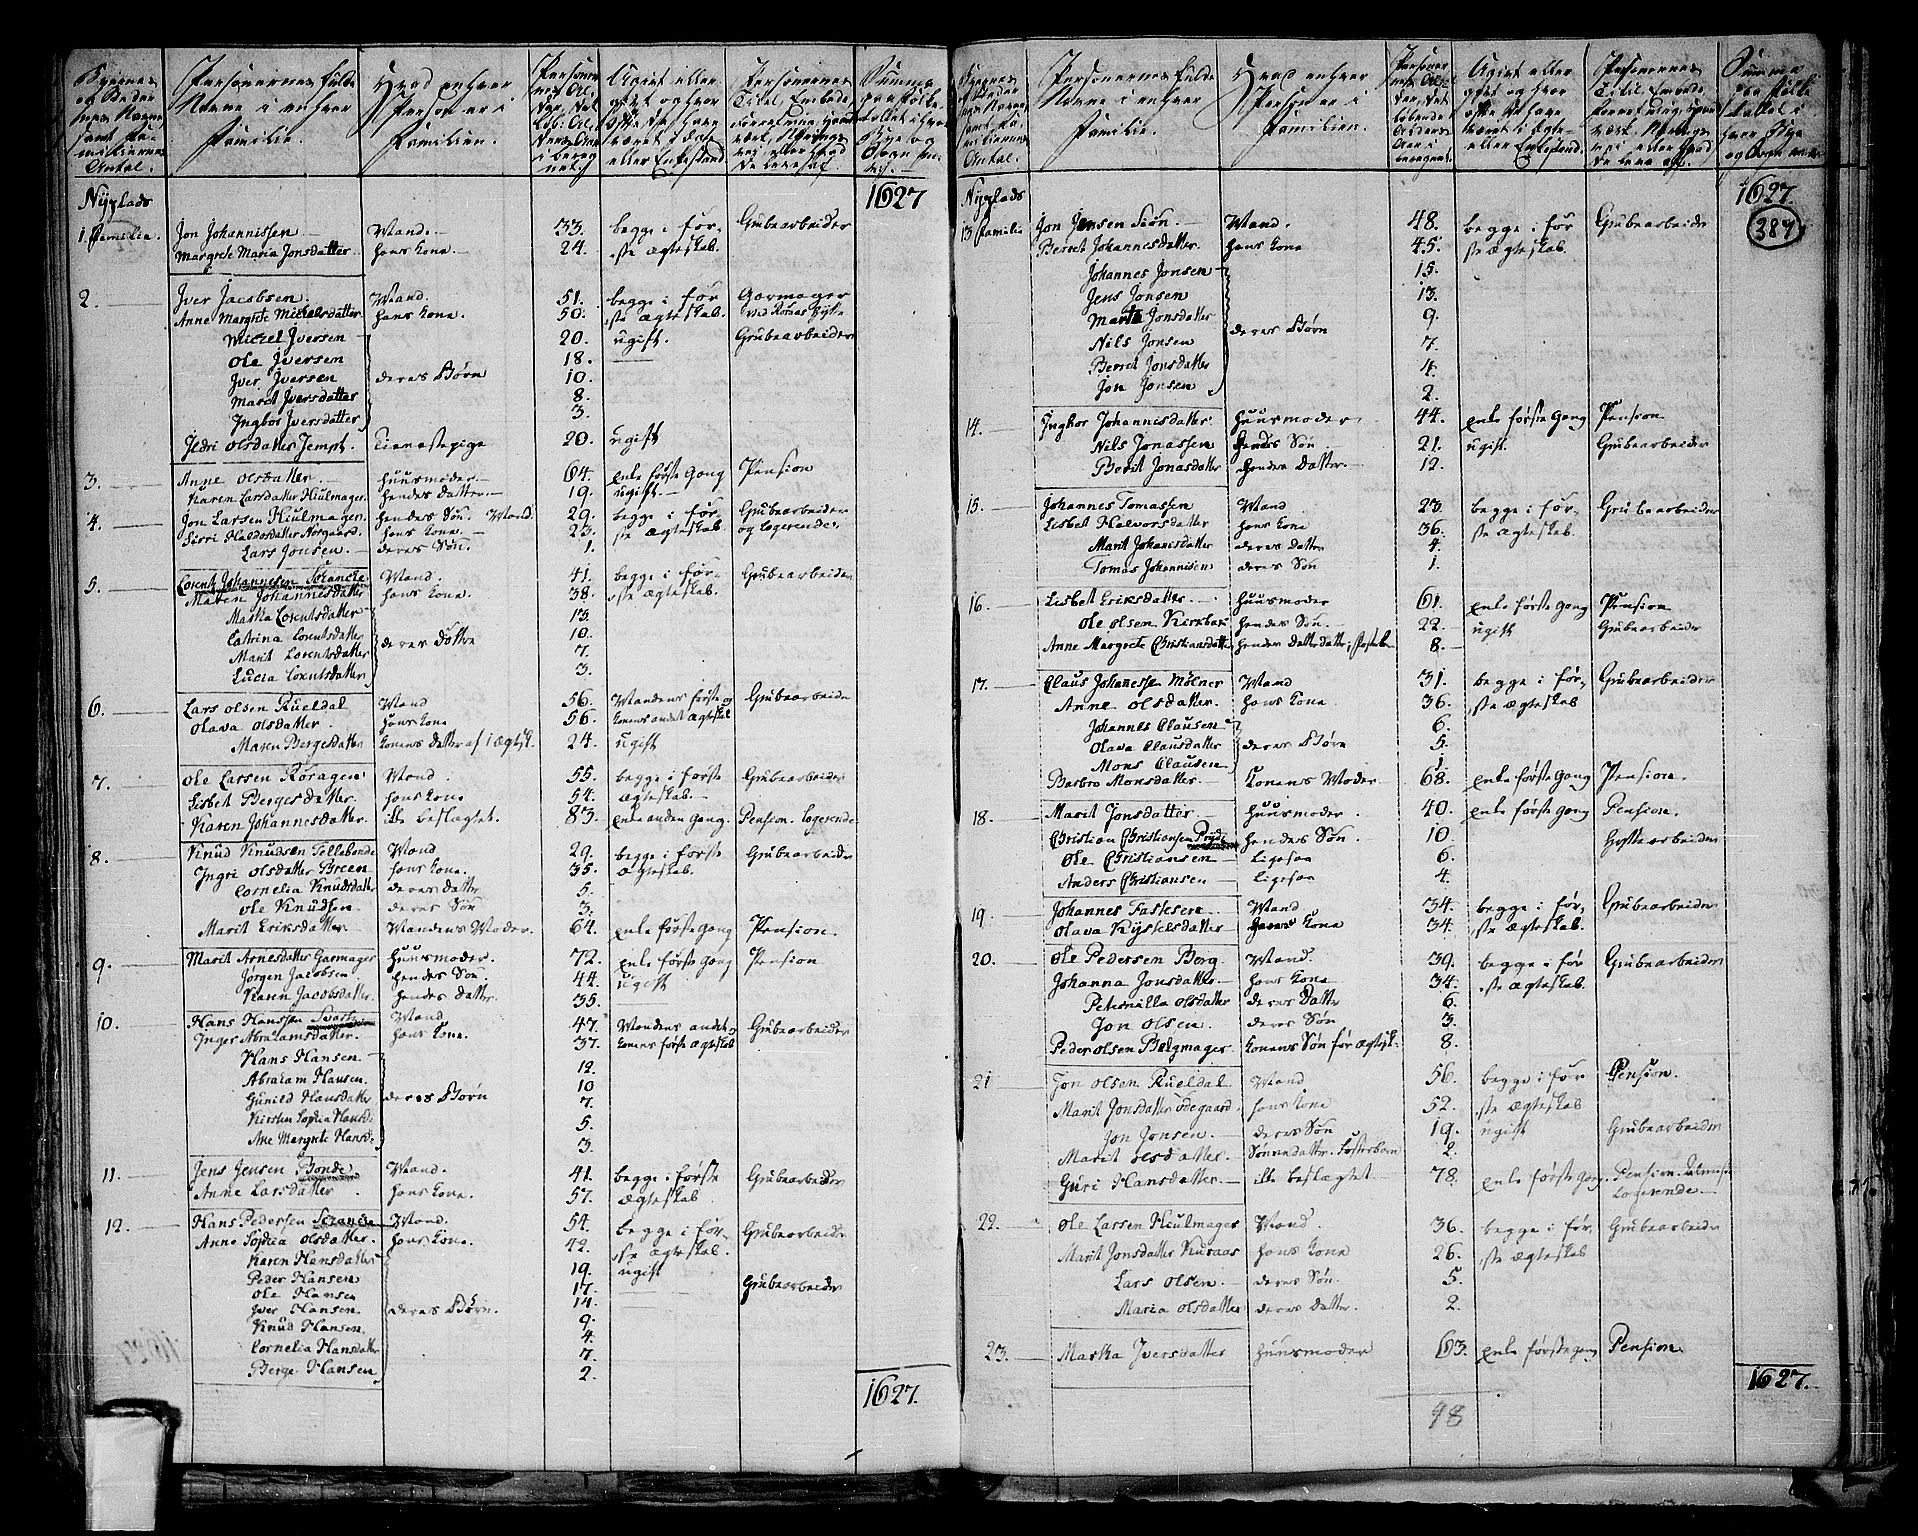 Byernes
og Gaardenes
Personernes fulde
Navne i enhver
Familie.
Hvad enhver
Person er i
Familien.
Summa
1627
Nyplads
1. Familie. Jon Johannissen Mand. 33. begge i før- Grubearbeider
Margrete Maria Jonsdatter hans Kone. 24. ste ægteskab.
2. Jver Jacobsen. Mand. 51. begge i før Garmager
Anne Margrete Michelsdatter hans Kone. 50. ste ægteskab. ved Røraas Hytte
Michel Jversen 20. ugift. Grubearbeider
Ole Jversen 18.
Jver Jversen deres Børn 10.
Marit Jversdatter 8.
Ingbor Jversdatter 3.
Jldri Olsdatter Jempt. tienestepige 20. ugift
3. Anne Olsdatter. Huusmoder. 64. enke første Gang Pension
Karen Larsdatter Hiulmager. hendes Datter. 19. ugift.
4. Jon Larsen Hiulmager. hendes Søn. Mand. 29. begge i før- Grubearbeider
Sirri Haldosdatter Norgaard. hans Kone. 23. ste ægteskab og logerende.
Lars Jonsen. deres Søn. 1.
5. Lorentz Johannesen Schancke Mand. 41. begge i før- Grubearbeider
Maren Johannesdatter hans Kone. 38. ste ægteskab.
Maska Lorentsdatter 13.
Catrina Lorentsdatter 10.
Marit Lorentsdatter deres Døttre 7.
Lucia Lorentsdatter 3.
6. Lars Olsen Rueldal Mand 56. Mandens første og Grubearbeider
Olava Olsdatter. hans Kone 56. Konens andet ægteskab
Maren Bergesdatter Konens Datter af 1 ægtsk. 24. ugift
7. Ole Larsen Røragen Mand. 55. begge i første Grubearbeider
Lisbet Bergesdatter. hans Kone 54. ægteskab.
Karen Johannesdatter. ikke beslægtet. 83. enke anden Gang. Pension. logerende
8. Knud Knudsen Tollebonde Mand 29. begge i første Grubearbeider
Ingri Olsdatter Breen hans Kone. 35. ægteskab.
Cornelia Knudsdatter deres Datter 5.
Ole Knudsen deres Søn 3.
Marit Eriksdatter Mandens Moder. 64. enke første Gang Pension.
9. Marit Arnesdatter Garmager Huusmoder. 72. enke første Gang Pension
Jørgen Jacobsen. hendes Søn. 44. ugift
Karen Jacobsdatter. hendes Datter. 35.
10. Hans Hanssen Mand 47. Mandens andet og Grubearbeider
Inger Abrahamsdatter. hans Kone. 37. Konens første ægteskab
Hans Hansen 12.
Abraham Hansen. 10
Gunild Hansdatter deres Børn 7.
Kirsten Sophia Hansd: 5.
Ane Margrete Hansd: 3.
11. Jens Jensen Bonde Mand. 41. begge i første Grubearbeider
Anne Larsdatter hans Kone. 57. ægteskab
12. Hans Pedersen Schancke Mand. 54. begge i før- Grubearbeider
Anne Sophia Olsdatter. hans Kone. 42. ste ægteskab.
Karen Hansdatter 19. ugift
Peder Hansen 17. Grubearbeider
Ole Hansen 14.
Jver Hansen. deres Børn. 9.
Knud Hansen. 4.
Cornelia Hansdatter 7.
Berge Hansen 2.
1627.
Personernes fulde
Navne i enhver
Familie.
Hvad enhver
Person er i
Familien.
Summa
1627.
387
Nyplads
13 Familie Jon Jensen Siøn. Mand. 48. begge i før Grubearbeider
Berret Johannesdatter. hans Kone 45. ste ægteskab.
Johannes Jonsen 15.
Jens Jonsen 13.
Marta Jonsdatter deres Børn 9.
Nils Jonsen 7.
Berret Jonsdatter 4.
Jon Jonsen 2.
14. Ingbor Johannisdatter. Huusmoder 44. enke første Gang Pension
Nils Jonassen hendes Søn 21. ugift. Grubearbeider
Berit Jonasdatter hendes Datter. 12.
15. Johannes Tomassen Mand. 23. begge i før- Grubearbeider
Lisbet Halvorsdatter hans Kone 36. ste ægteskab.
Marit Johanisdatter deres Datter 4.
Tomas Johannisen deres Søn 1.
16. Lisbet Eriksdatter. Huusmoder 61. enke første Gang Pension
Ole Olsen Kirkbak hendes Søn. 22. ugift Grubearbeider
Anne Margrete Christiansdatter hendes Datterdatter, 8.
17. Claus Johannessen Mølner Mand 31. begge i før- Grubearbeider
Anne Olsdatter. hans Kone 36. ste ægteskab
Johannes Clausen 6.
Olava Clausdatter deres Børn 5.
Mons Clausen 1.
Barbro Monsdatter. Konens Moder. 68. enke første Gang Pension.
18. Marit Jonsdatter Huusmoder. 40. enke første Gang Pension.
Christian Christiansen Pryds hendes Søn. 10. Hyttearbeider
Ole Christiansen ligesaa 6.
Anders Christiansen ligesaa 4.
19. Johannes Fastesen Mand 34. begge i før- Grubearbeider
Olava Kysselsdatter hans Kone 34. ste ægteskab.
20. Ole Pedersen Berg. Mand. 39. begge i før Grubearbeider
Johanna Jonsdatter hans Kone 34. ste ægteskab.
Peternilla Olsdatter deres Datter 6.
Jon Olsen. deres Søn 3.
Peder Olsen Bælgmager. Konens Søn før ægtsk. 8.
21 Jon Olsen Rueldal Mand 56. begge i før Pension.
Marit Jonsdatter Ødegaard. hans Kone 52. ste ægteskab
Jon Jonsen. deres Søn 19. ugift Grubearbeider
Marit Olsdatter. Sønnedatter. Fosterbarn 2.
Guri Hansdatter. ikke beslægtet 78. enke første Gang. Pension.
logerende.
22. Ole Larsen Hiulmager Mand. 36. begge i før- Grubearbeider
Marit Jonsdatter Kuraas hans Kone 26. ste ægteskab
Lars Olsen. deres Søn. 5.
Maria Olsdatter deres Datter. 2.
23. Maska Jversdatter Huusmoder 63. enke første Gang Pension.
1627.
98